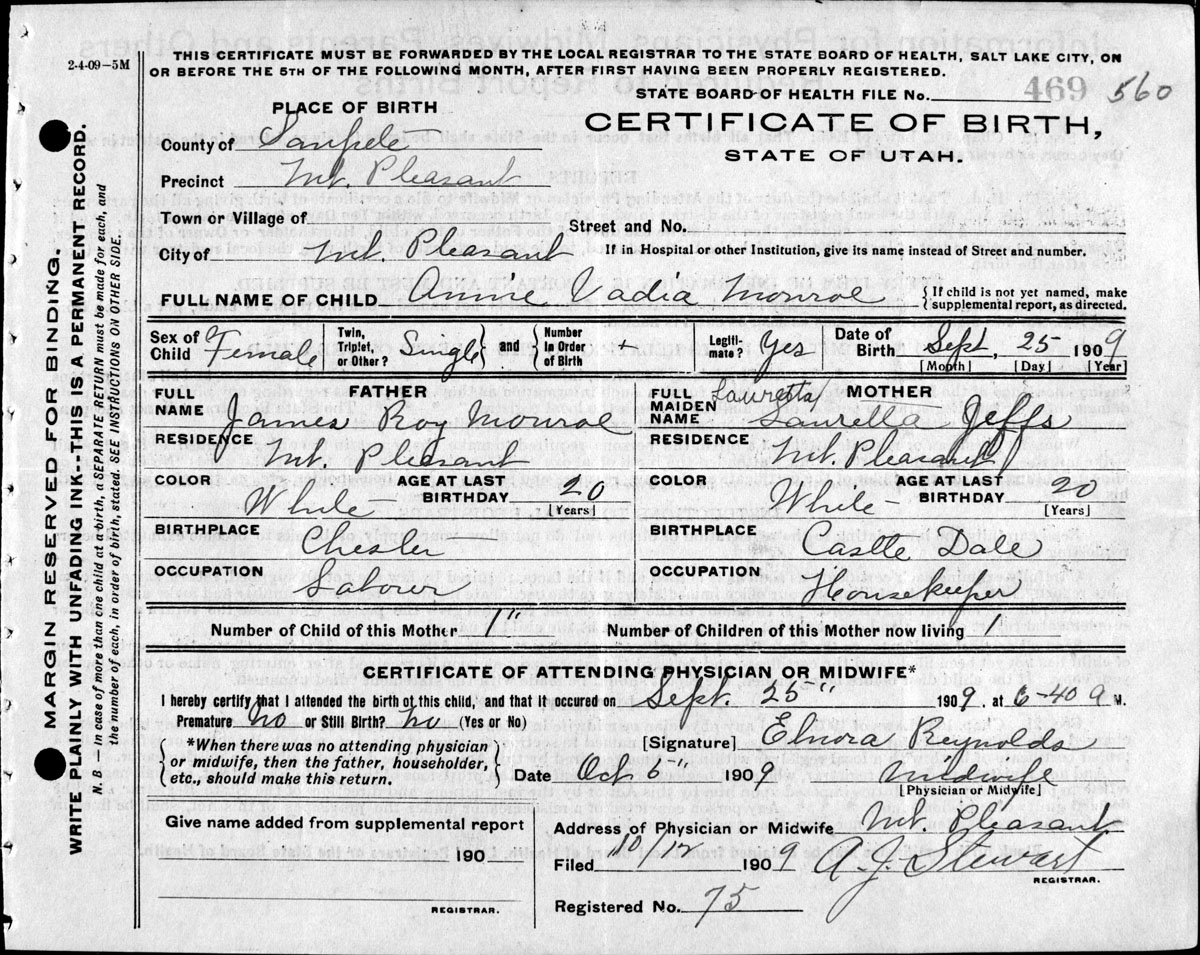 2-4-09-5M
THIS CERTIFICATE MUST BE FORWARDED BY THE LOCAL REGISTRAR TO THE STATE BOARD OF HEALTH, SALT LAKE CITY, ON
OR BEFORE THE 5TH OF THE FOLLOWING MONTH, AFTER FIRST HAVING BEEN PROPERLY REGISTERED.
STATE BOARD OF HEALTH FILE No. 469 560
PLACE OF BIRTH
CERTIFICATE OF BIRTH,
STATE OF UTAH.
County of Sanpete
Precinct Mt. Pleasant
Town or Village of
Street and No.
City of Mt. Pleasant
If in Hospital or other Institution, give its name instead of Street and number.
FULL NAME OF CHILD Annie Vadia Monroe {If child is not yet named, make
supplemental report, as directed.
Sex of Child Female Twin, Triplet, or Other? Single and Number in Order of Birth + Legiti-mate? Yes Date of Birth Sept. 25 1909
[Month] [Day] [Year]
FATHER
FULL NAME James Roy Monroe
RESIDENCE Mt. Pleasant
COLOR White AGE AT LAST BIRTHDAY 20 [Years]
BIRTHPLACE Chester
OCCUPATION Laborer
MOTHER
FULL MAIDEN NAME Lauretta
Laurella Jeffs
RESIDENCE Mt. Pleasant
COLOR White AGE AT LAST BIRTHDAY 20 [Years]
BIRTHPLACE Castle Dale
OCCUPATION Housekeeper
Number of Child of this Mother 1" Number of Children of this Mother now living 1
CERTIFICATE OF ATTENDING PHYSICIAN OR MIDWIFE*
I hereby certify that I attended the birth of this child, and that it occured on Sept. 25" 1909, at 6-40 a M.
Premature No or Still Birth? no (Yes or No)
*When there was no attending physician
or midwife, then the father, householder,
etc., should make this return.
[Signature] Elnora Reynolds
Date Oct 6" 1909 Midwife
[Physician or Midwife]
Give name added from supplemental report
190
REGISTRAR.
Address of Physician or Midwife Mt. Pleasant
Filed 10/12 1909 A. J. Stewart
REGISTRAR.
Registered No. 75
MARGIN RESERVED FOR BINDING.
WRITE PLAINLY WITH UNFADING INK--THIS IS A PERMANENT RECORD.
N. B. — In case of more than one child at birth, a SEPARATE RETURN must be made for each, and
the number of each, in order of birth, stated. SEE INSTRUCTIONS ON OTHER SIDE.